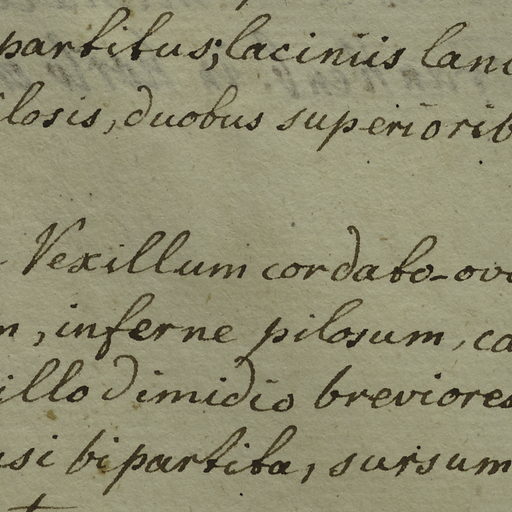 partitus; laciniis lan
losis, duobus superiorib
Vexillum cordato-ov
m, inferne pilosum, ca
illo dimidio breviores
si bipartita, sursum